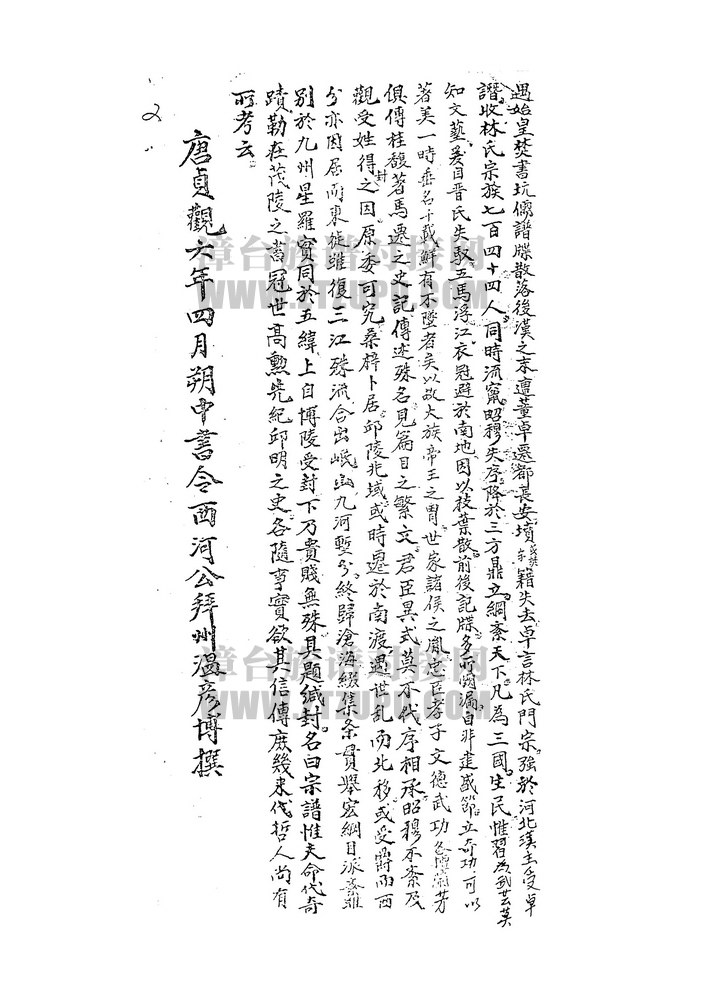 遇始皇焚書坑儒譜牒散落後漢之末遭董卓遷都長安墳籍失去卓言林氏門宗強於河北漢主受卓
譖收林氏宗族七百四十四人同時流竄昭穆失序降於三方鼎立綱紊天下凡為三國生民惟習為武芸莫
知文藝爰自晋氏失馭五馬浮江衣冠避於南地因以枝葉散前後記牒多所闕漏自非建盛節立奇功可以
著美一時垂名千載鮮有不墜者矣以故大族帝王之冑世家諸侯之胤忠臣孝子文德武功各擅蘭芳
俱傳桂馥著馬遷之史記傳述殊名見篇目之繁文君臣異式莫不代序相承昭穆不紊及
觀受姓得封之因原委可究桑梓卜居邱陵兆域或時遷於南渡遇世乱而北移或受爵而西
分亦因居而東徙雖復三江殊流合出岷山九河塹分終歸滄海綴集条貫舉宏綱目派衆雖
别於九州星羅實同於五緯上自博陵受封下乃貴賤無殊具題緘封名曰宗譜惟夫命代奇
蹟勒在茂陵之蓄冠世高勲先紀邱明之史各隨事實欲其信傳庶幾来代哲人尚有
所考云
唐貞觀六年四月朔中書令西河公拜州温彦博撰
2
漳台族谱对接网
WWW.ZTZUPU.COM
漳台族谱对接网
WWW.ZTZUPU.COM